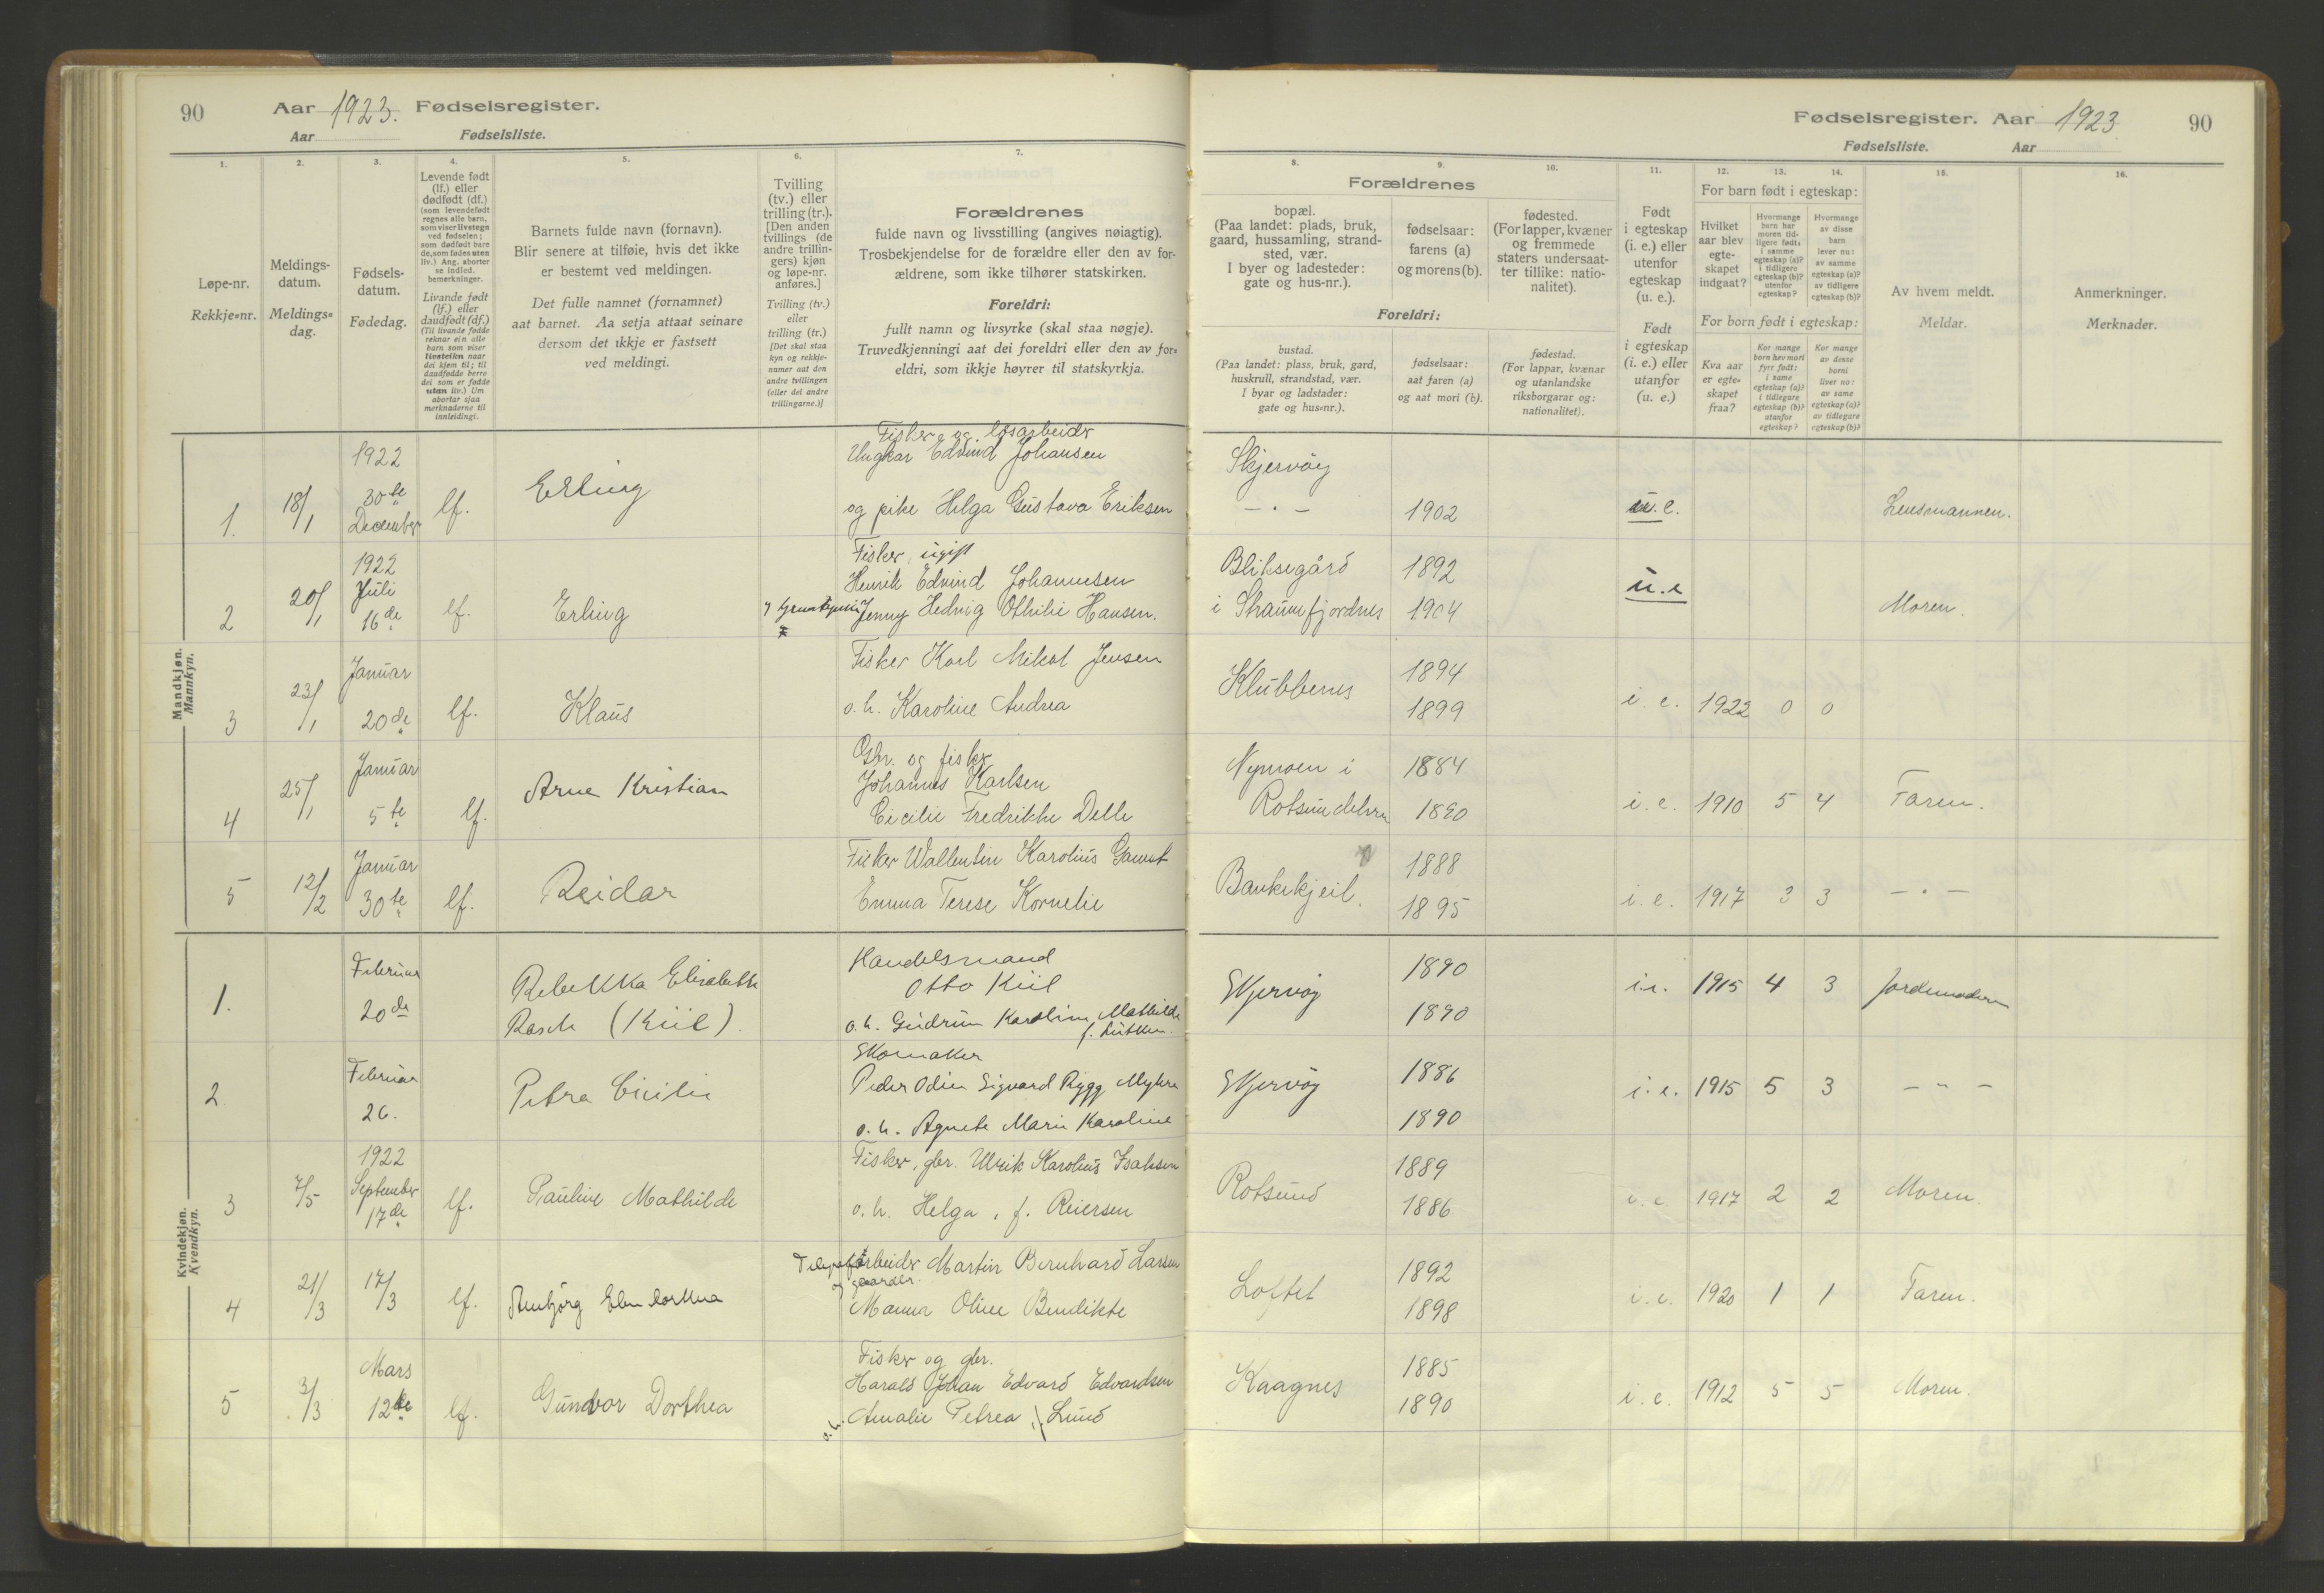 90 Aar 1923. Fødselsregister.
Aar Fødselsliste.
1. 2. 3. 4. 5. 6. 7.
Løpe-nr.
Rekkje=nr.
Meldings-
datum.
Meldings=
dag.
Fødsels-
datum.
Fødedag.
Levende født
(lf.) eller
dødfødt (df.)
(som levendefødt
regnes alle barn,
som viser livstegn
ved fødselen;
som dødfødt bare
de, som fødes uten
liv.) Ang. aborter
se indled.
bemerkninger.
Livande født
(lf.) eller
daudfødt (df.)
(Til livande fødde
reknar ein alle
barn som viser
livsteikn naar
dei kjem til; til
daudfødde berre
dei som er fødde
utan liv.) Um
abortar sjaa
merknaderne til
innleidingi.
Barnets fulde navn (fornavn).
Blir senere at tilføie, hvis det ikke
er bestemt ved meldingen.
Det fulle namnet (fornamnet)
aat barnet. Aa setja attaat seinare
dersom det ikkje er fastsett
ved meldingi.
Tvilling
(tv.) eller
trilling (tr.).
[Den anden
tvillings (de
andre trillin-
gers) kjøn
og løpe-nr.
anføres.]
Tvilling (tv.)
eller
trilling (tr.)
[Det skal staa
kyn og rekkje-
numer aat den
andre tvillingen
(eller dei andre
trillingarne.)]
Forældrenes
fulde navn og livsstilling (angives nøiagtig).
Trosbekjendelse for de forældre eller den av for-
ældrene, som ikke tilhører statskirken.
Foreldri:
fullt namn og livsyrke (skal staa nøgje).
Truvedkjenningi aat dei foreldri eller den av for=
eldri, som ikkje høyrer til statskyrkja.
Mandkjøn.
Mannkyn.
1922
Fisker og løsarbeider
Ungkar Edvind Johansen
1. 18/1 30te December lf. Erling
og pike Helga Gustava Eriksen
1922
Fisker, ugift
2 20/1 Juli 16de lf. Erling
Henrik Edvind Johannesen
Jenny Hedvig Othilie Hansen.
Januar
Fisker Karl Mikal Jensen
3 23/1 20de lf. Klaus
o. h. Karoline Andrea
Januar
Gbr. og fisker
Johannes Karlsen
4 25/1 5te lf. Arne Kristian
Cicilie Fredrikke Delle
Januar
Fisker Wallentin Karolius Gamst
5 12/2 30te lf. Reidar
Emma Terese Kornelie
Kvindekjøn.
Kvendkyn.
Februar
Handelsmand
Otto Kiil
1. 20de Rebekka Elisabeth
Rasch (Kiil).
o. h. Gudrun Karoline Mathilde
Februar
Skomaker
2. 26. Petra Cicilie
Peder Odin Sigvard Rygg Myhre
o. h. Agnete Marie Karoline
1922
Fisker, gbr. Ulrik Karolius Isaksen
3 7/5 September 17de lf. Pauline Mathilde
o. h. Helga, f. Reiersen
arbeider Martin Bernhard Larsen
4 21/3 17/3 lf.
Manna Oline Bendikte
Mars
Fisker og gbr.
Harald Johan Edvard Edvardsen
5 3/3 12te lf. Gundvor Dorthea
o. h. Amalie Petrea Lund
Fødselsregister. Aar 1923 90
Fødselsliste. Aar
8. 9. 10. 11. 12. 13. 14. 15. 16.
Forældrenes
bopæl.
(Paa landet: plads, bruk,
gaard, hussamling, strand-
sted, vær.
I byer og ladesteder:
gate og hus-nr.).
fødselsaar:
farens (a)
og morens (b).
fødested.
(For lapper, kvæner
og fremmede
staters undersaat-
ter tillike: natio-
nalitet).
Foreldri:
bustad.
(Paa landet: plass, bruk, gard,
huskrull, strandstad, vær.
I byar og ladstader:
gate og hus=nr.).
fødselsaar:
aat faren (a)
og aat mori (b).
fødestad.
(For lappar, kvænar
og utanlandske
riksborgarar og:
nationalitet).
Født
i egteskap
(i. e.) eller
utenfor
egteskap
(u. e.).
Født
i egteskap
(i. e.) eller
utanfor
egteskap
(u. e.)
For barn født i egteskap:
Hvilket
aar blev
egte-
skapet
indgaat?
Hvormange
barn har
moren tid-
ligere født:
i samme
egteskap (a)?
i tidligere
egteskap (b)?
utenfor
egteskap?
Hvormange
av disse
barn
lever nu:
av samme
egteskap (a)?
av tidligere
egteskap (b)?
For born født i egteskap:
Kva aar
er egte=
skapet
fraa?
Kor mange
born hev mori
fyrr født:
i same
egteskap (a)?
i tidlegare
egteskap (b)?
utanfor
egteskap?
Kor mange
av desse
borni
liver no:
av same
egteskap (a)?
av tidlegare
egteskap (b)?
Av hvem meldt.
Meldar.
Anmerkninger.
Merknader.
Skjervøy
— " — 1902 u. e. Lensmannen.
Bliksegård 1892 u. e
i Straumfjordnes 1904 Moren.
Klubbenes 1894
1899 i. e. 1922 0 0
Nymoen i 1884
Rotsundelven 1890 i. e. 1910 5 4 Faren.
1888
Bankekjeil. 1895 i. e. 1917 3 3 — " —
1890
Skjervøy i.e. 1915 4 3 Jordemoderen
1890
1886
Skjervøy i. e. 1915 5 3 — " —
1890
1889
Rotsund i. e. 1917 2 2 Moren.
1886
1892
Loftet i. e. 1920 1 1 Faren.
1898
1885
Kaagnes i. e. 1912 5 5 Moren.
1890